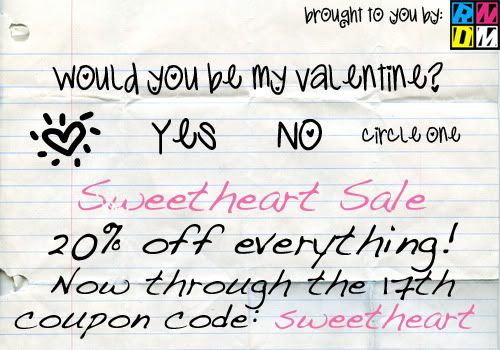 brought to you by: RNDM
would you be my valentine?
Yes NO circle one
Sweetheart Sale
20% off everything!
Now through the 17th
coupon code: sweetheart